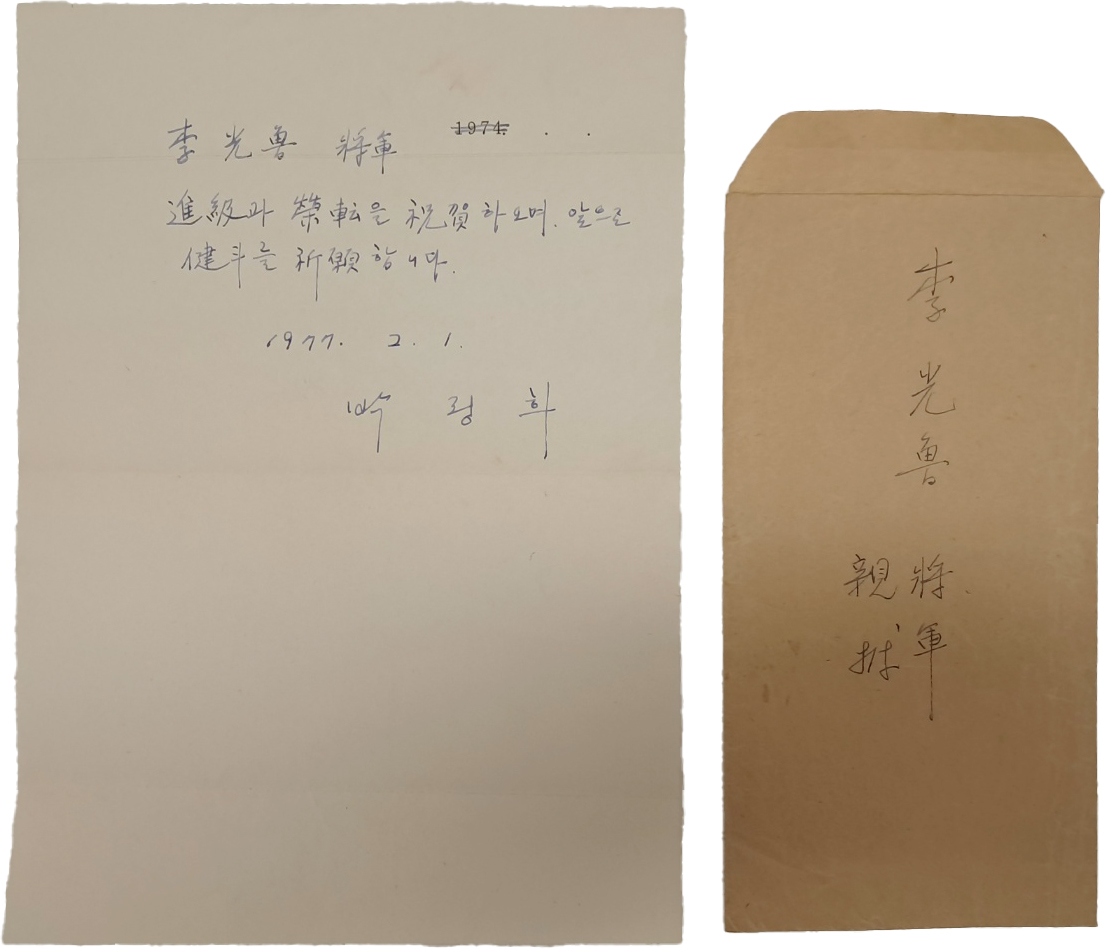 1974. . .
李 光 魯 將軍
進級과 榮転을 祝賀하오며. 앞으로
健斗를 祈願합니다.
1977. 2. 1.
박 정 희
李光魯 將軍
親